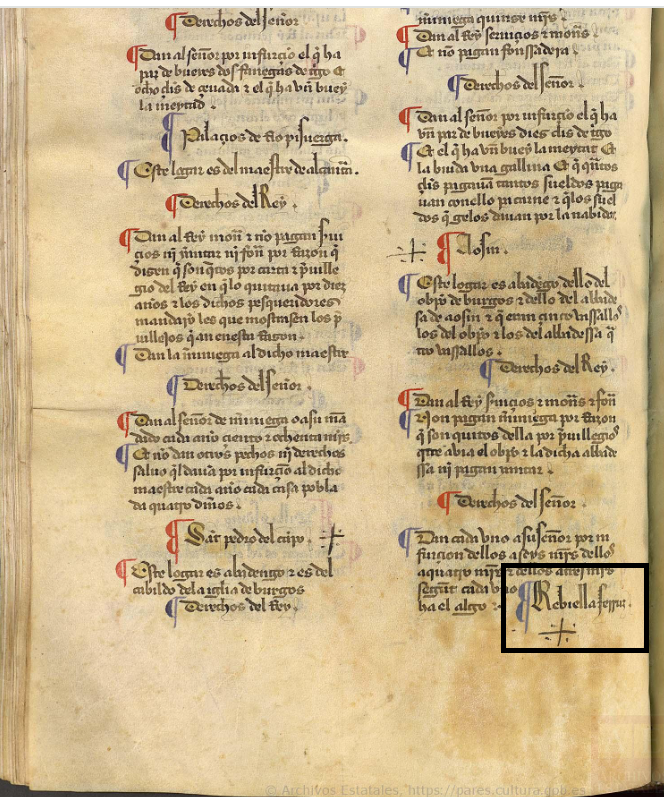 Derechos del señor
Dan al señor por infurçio el q̃ ha
par de bueyes dos fanegas de tgo Et
ocho çls de çeuada ⁊ el q̃ ha vn buey
la meytad .
Palaçios de rio pisuerga .
Este logar es del maestre de alcantã .
Derechos del Rey .
Dan al Rey mon̄ ⁊ no pagan Ssui
çios nj̃ yantar nj̃ fon̄ por Razon q̃
dizen q̃ son qͥtos por carta ⁊ p̃uille
gio del Rey en q̃ lo quitaua por diez
años ⁊ los dichos pesqueridores
mandarõ les que mostrasen los p̃
uillejos q̃ an en esta Razon .
Dan la m̃iniega al dicho maestre
Derechos del Señor .
Dan al señor de m̃iniega o a su mã
dado cada año çiento ⁊ ochenta mr̃s
Et nõ dan otros pechos nj̃ derechos
saluo q̃l dauã por infurçio al dicho
maestre cada año cada casa pobla
da quatro dineros .
Sant pedro del
Este logar es abadengo ⁊ es del
cabildo dela iglia de burgos
Derechos del Rey .
m̃iniega quinze mr̃s .
Dan al Rey seruiçios ⁊ mon̄s .
Et nõ pagan fonssadera .
Derechos del Señor .
Dan al señor por infurçio el q̃ ha
vn par de bueyes diez çls de tgo
Et el q̃ ha vn buey la meytat Et
la biuda vna gallina Et q̃ qñtos
çls pagauã tantos sueldos paga
uan conello ⁊ q̃ los suel
dos q̃ gelos dauan por la nabidat
Aosin .
Este logar es abadẽgo dello del
obp̃o de burgos ⁊ dello del abbade
sa de aosin ⁊ q̃ eran çinco vassallos
los del obp̃o ⁊ los del abbadessa q̃
tro vassallos .
Derechos del Rey .
Dan al Rey s̃uiçios ⁊ mon̄s ⁊ fon̄
Non pagan m̃iniega por Razon
q̃ son quitos della por p̃uillegio
que auia el obp̃o ⁊ la dicha abbade
ssa nj̃ pagan yantar .
Derechos del Señor .
Dan cada vno a su señor por in
furçion dellos a seys mr̃s dellos
a quatro mr̃s ⁊ dellos a tres mr̃s
segũt cada vno
ha el algo ⁊
Rebiella
© Archivos Estatales, https://pares.cultura.gob.es